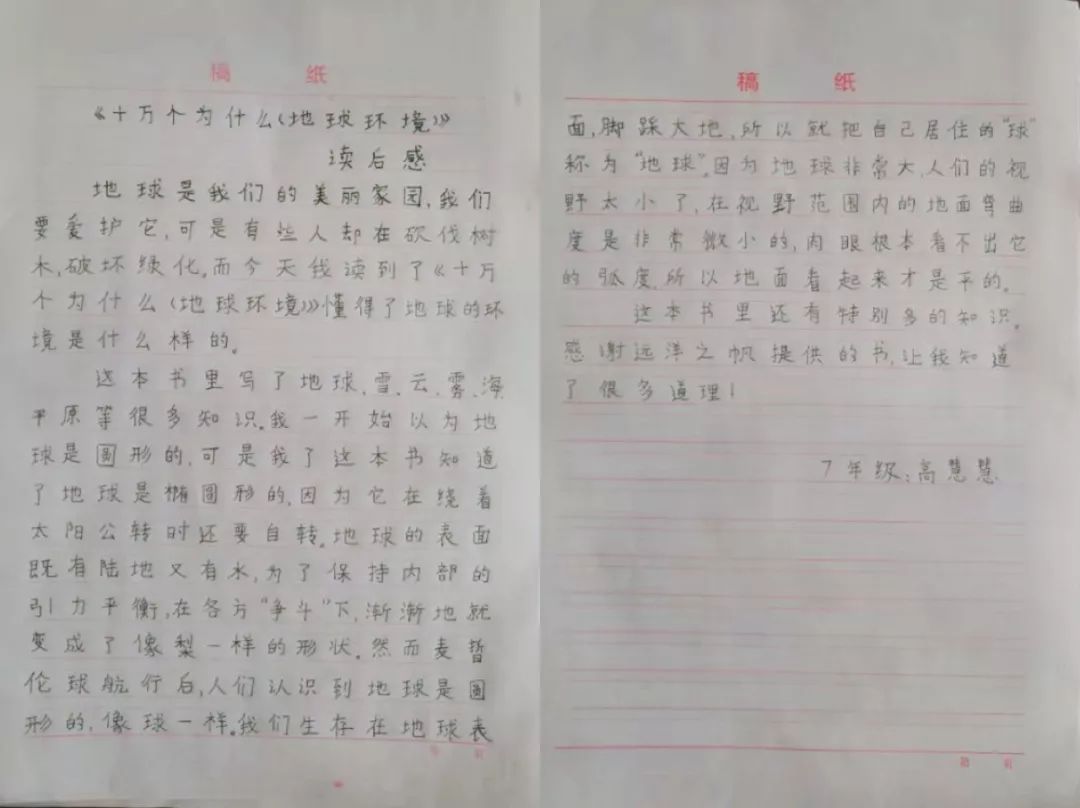 稿 纸
《十万个为什么(地球环境)》
读后感
地球是我们的美丽家园,我们
要爱护它,可是有些人却在砍伐树
木,破坏绿化,而今天我读到了《十万
个为什么(地球环境)》懂得了地球的环
境是什么样的。
这本书里写了地球、雪、云、雾、海
平原等很多知识。我一开始以为地
球是圆形的,可是我了这本书知道
了地球是椭圆形的,因为它在绕着
太阳公转时还要自转。地球的表面
既有陆地又有水,为了保持内部的
引力平衡,在各方“争斗”下,渐渐地就
变成了像梨一样的形状。然而麦哲
伦球航行后,人们认识到地球是圆
形的,像球一样。我们生存在地球表
第 页
稿 纸
面,脚踩大地,所以就把自己居住的“球”
称为“地球”。因为地球非常大,人们的视
野太小了,在视野范围内的地面弯曲
度是非常微小的,肉眼根本看不出它
的弧度,所以地面看起来才是平的。
这本书里还有特别多的知识。
感谢远洋之帆提供的书,让我知道
了很多道理!
7年级:高慧慧
第 页